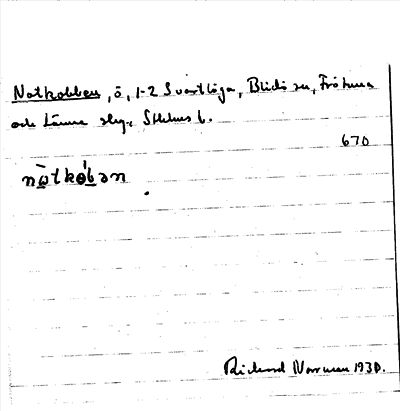 Notkobben, ö, 1-2 Svartlöga, Blidö sn, Frötuna
och Länna skg., Sthlms l.
670
nò̱tkó̱ḇən
Rickard Norman 1930.